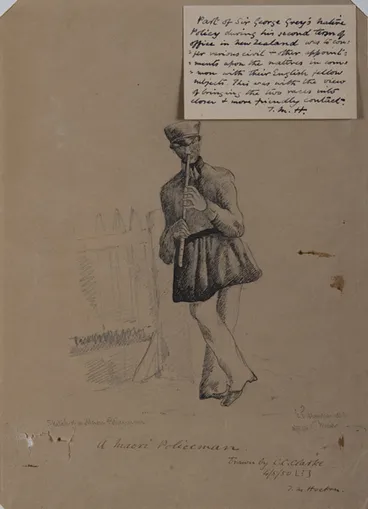 Part of Sir George Grey's native
Policy during his second term of
office in New Zealand was to con
fer various civil & other appoint-
ments upon the natives in com
mon with their English fellow
subjects. This was with the view
of bringing the two races into
closer & more friendly contact.
T. M. H.
A Maori Policeman
Drawn by
T. M. Hocken